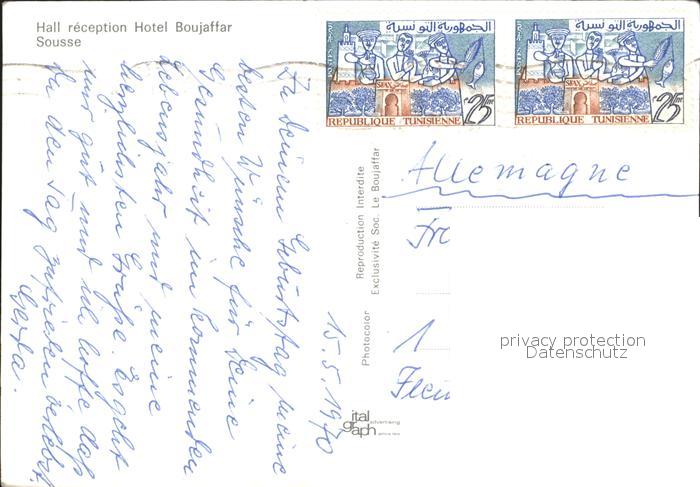 Hall réception Hotel Boujaffar
Sousse
الجمهورية التونسية
SFAX
25m
REPUBLIQUE TUNISIENNE
الجمهورية التونسية
SFAX
25m
REPUBLIQUE TUNISIENNE
15.5.1970
Zu Deinem Geburtstag meine
besten Wünsche für Deine
Gesundheit im kommenden
Lebensjahr und meine
herzlichsten Grüße. Es geht
mir gut und ich hoffe daß
Du den Tag zufrieden verlebst.
Gerda.
Photocolor
Reproduction Interdite
Exclusivité Soc. Le Boujaffar
ital
graph
advertising
Allemagne
Fr
1
privacy protection
Datenschutz